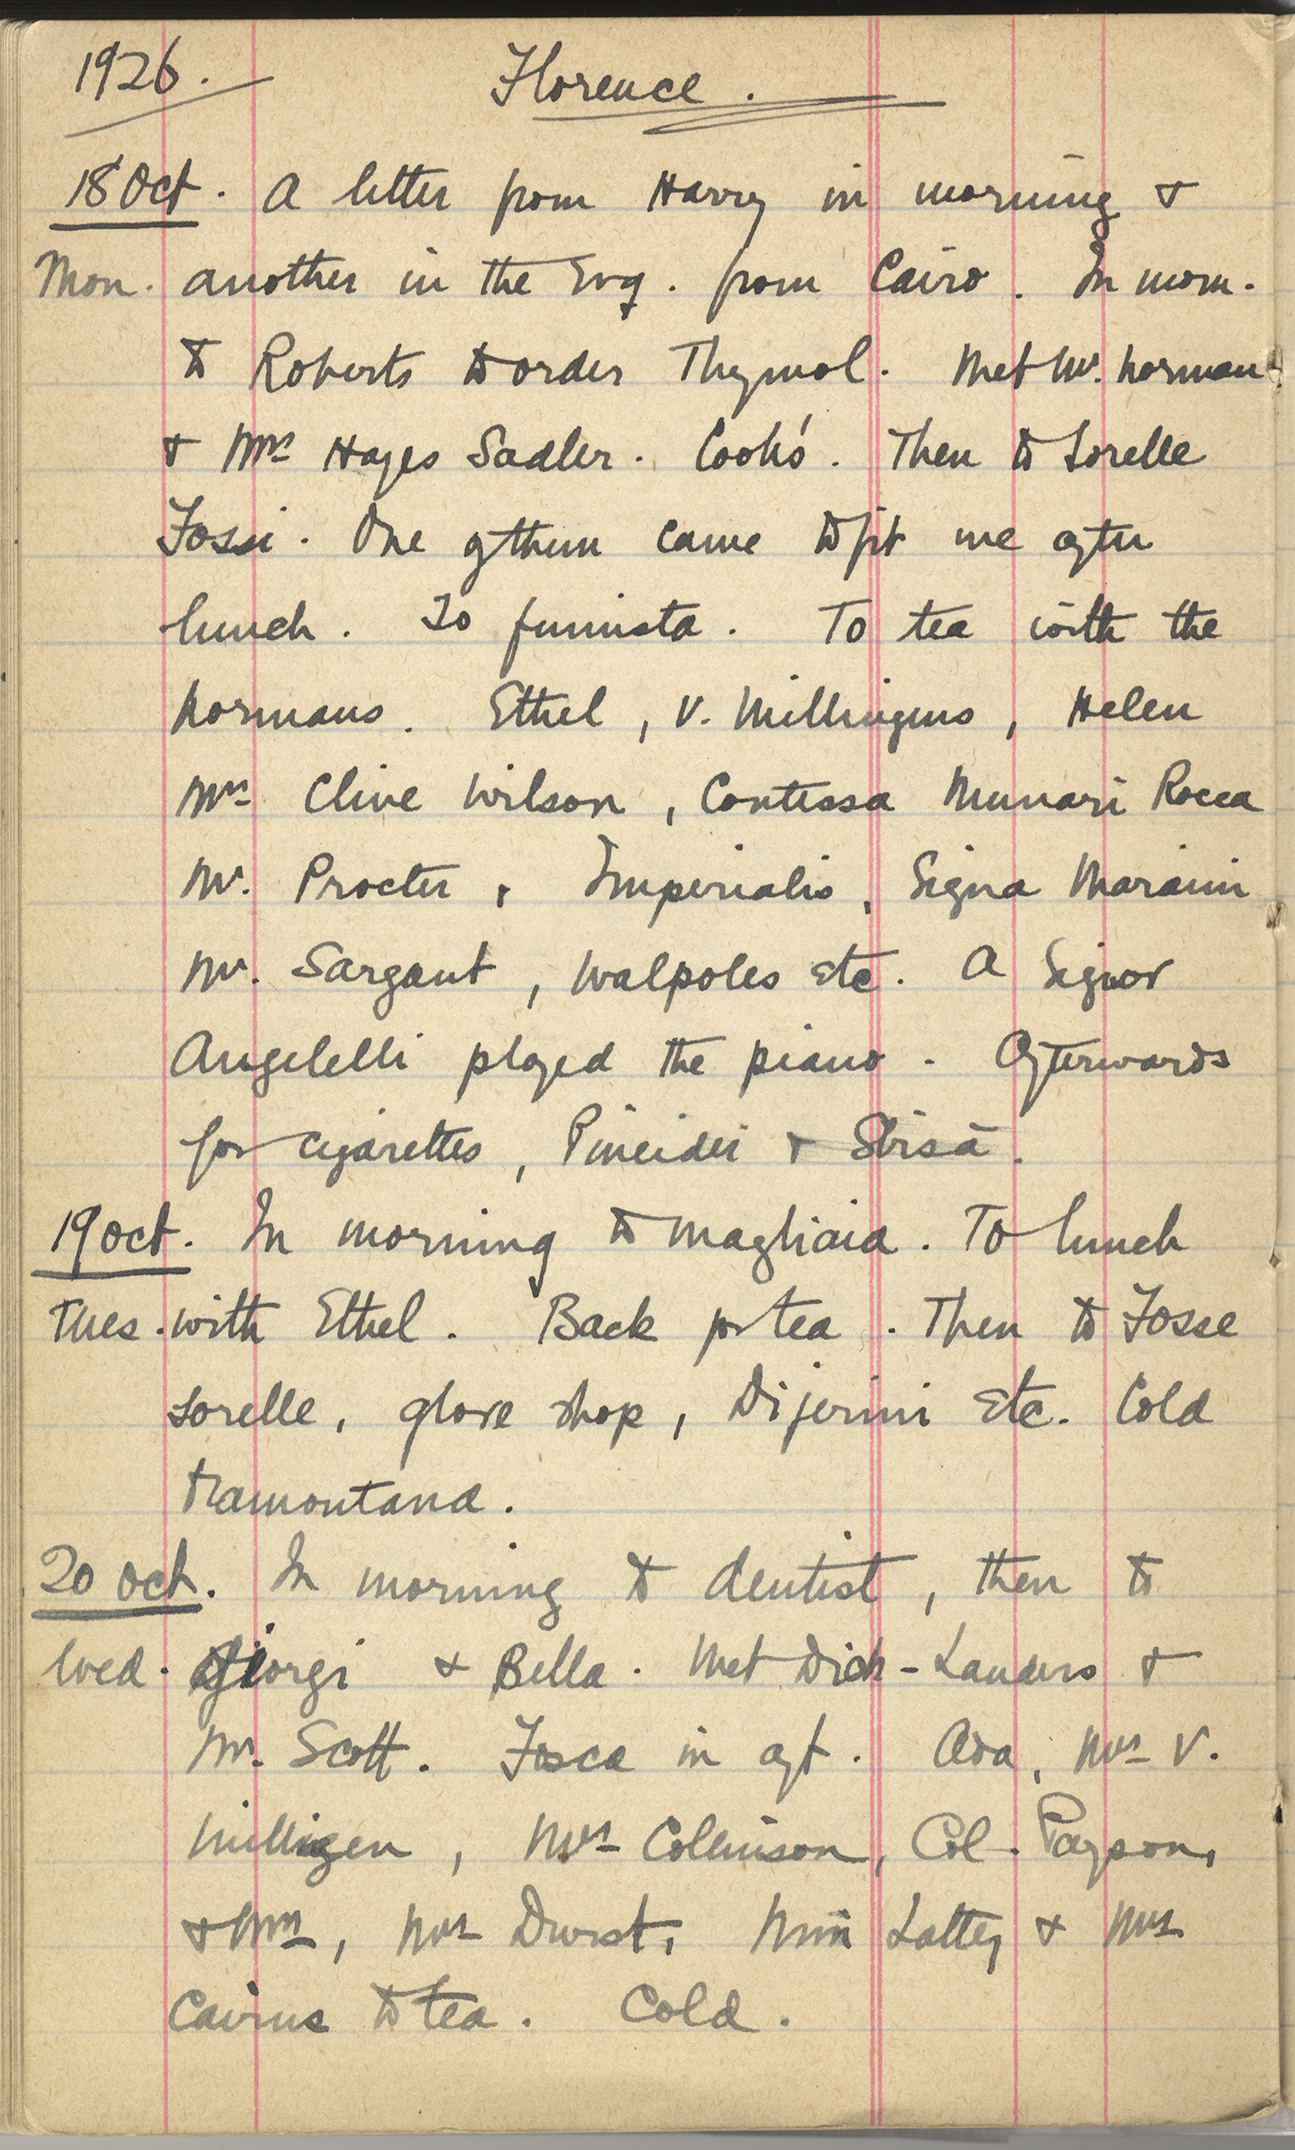 1926. Florence.
18 Oct. A letter from Harry in morning &
Mon. another in the Evg. from Cairo. In morn.
to Roberts to order Thymol. Met Mr. Norman
& Mrs Hayes Sadler. Cook's. Then to Sorelle
Fossi. One of them came to fit me after
lunch. To fumista. To tea with the
Normans. Ethel, V. Millingens, Helen
Mrs Clive Wilson, Contessa Munari Rocca
Mr. Procter, Imperialis, Signa Maraini
Mr. Sargant, Walpoles etc. A Signor
Angelelli played the piano. Afterwards
for cigarettes, Pineider & Sbisà.
19 Oct. In morning to magliaia. To lunch
Tues. with Ethel. Back for tea. Then to Fosse
Sorelle, glove shop, Dijerini etc. Cold
tramontana.
20 Oct. In morning to dentist, then to
Wed. Giorgi & Bella. Met Dick-Lauders &
Mr. Scott. Fosca in aft. Ada, Mrs V.
Milligen, Mrs Collinson, Col. Payson,
& Mrs, Mrs Durst, Miss Lattey & Mrs
Cairns to tea. Cold.